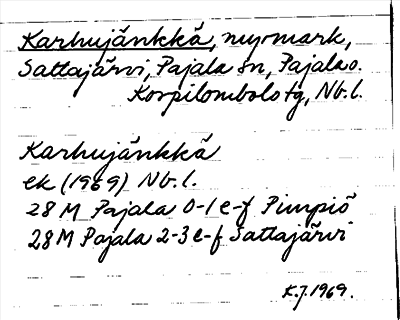 Karhujänkkä, myrmark,
Sattajärvi, Pajala sn, Pajala o.
Korpilombolo tg, Nb.l.
Karhujänkkä
ek (1969) Nb.l.
28 M Pajala 0-1 e-f Pimpiö
28 M Pajala 2-3 e-f Sattajärvi
K.J. 1969.